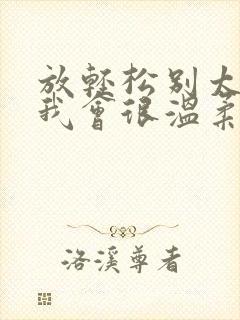 放轻松别太
我會很温柔
洛溪尊者